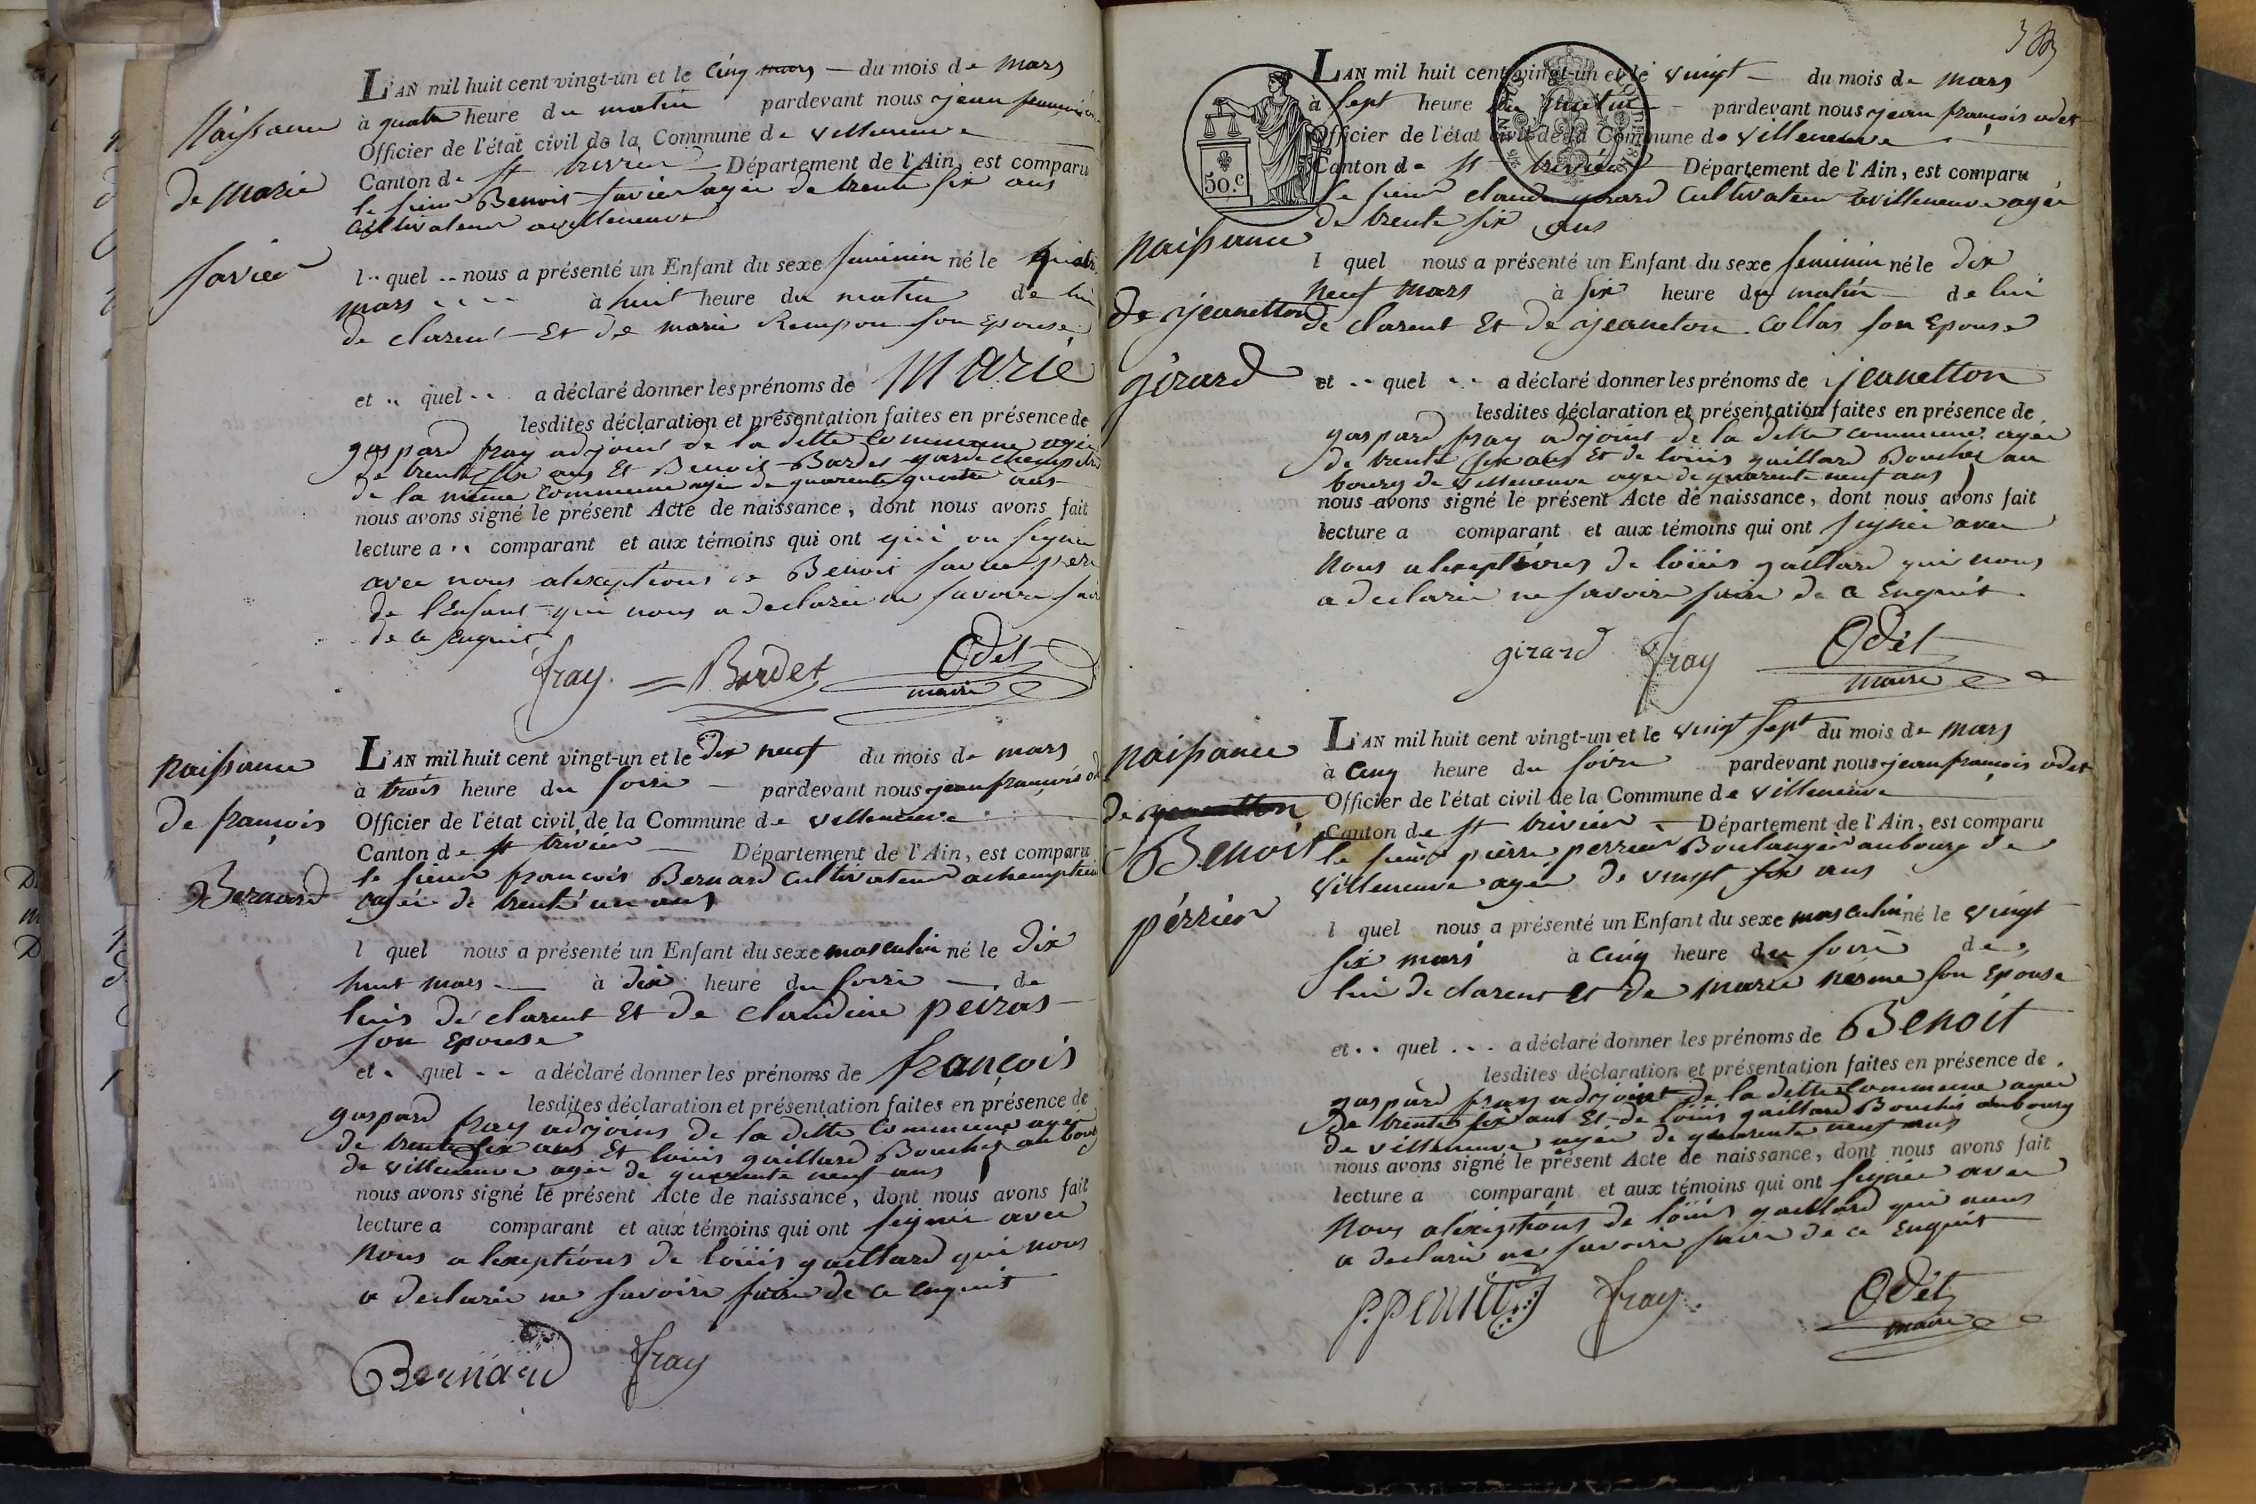 Naissance
de marie
favier
L'AN mil huit cent vingt-un et le cinq mars — du mois de mars
à quatre heure du matin pardevant nous jean françois
Officier de l'état civil de la Commune de villeneuve
Canton de st trivier — Département de l'Ain, est comparu
le sieur Benoit favier agée de trente six ans
cultivateur a villeneuve
l quel nous a présenté un Enfant du sexe feminin né le quatre
mars à huit heure du matin de lui
declarent Et de marie Rempon son Epouse
et quel a déclaré donner les prénoms de Marie
lesdites déclaration et présentation faites en présence de
gaspard fray adjoint de la ditte commune agée
de trente six ans Et Benoit Bardet garde champetre
de la même commune agée de quarente quatre ans
nous avons signé le présent Acte de naissance, dont nous avons fait
lecture a comparant et aux témoins qui ont qui on signée
avec nous alexeptions de Benoit favier pere
de l'Enfant qui nous a declarée ne savoire faire
de ce Enquit
fray Bardet Odet
maire
naissance
de françois
Bernard
L'AN mil huit cent vingt-un et le dix neuf du mois de mars
à trois heure du soire — pardevant nous jean françois od
Officier de l'état civil de la Commune de villeneuve
Canton de st trivier — Département de l'Ain, est comparu
le sieur françois Bernard cultivateur a
agée de trente un ans
l quel nous a présenté un Enfant du sexe masculin né le dix
huit mars — à dix heure du soire — de
luis declarent Et de claudine peiras
son Epouse
et quel a déclaré donner les prénoms de françois
lesdites déclaration et présentation faites en présence de
gaspard fray adjoint de la ditte commune agée
de trente six ans Et louis gaillard Boucher au bourg
de villeneuve agée de quarente neuf ans
nous avons signé le présent Acte de naissance, dont nous avons fait
lecture a comparant et aux témoins qui ont signée avec
nous alexeptions de louis gaillard qui nous
a declarée ne savoire faire de ce enquit
Bernard fray
50.c
naissance
de jeanetton
girard
L'AN mil huit cent vingt-un et le vingt — du mois de mars
à sept heure du matin — pardevant nous jean françois odet
Officier de l'état civil de la Commune de villeneuve
Canton de st trivier Département de l'Ain, est comparu
le sieur claude girard cultivateur a villeneuve agée
de trente six ans
l quel nous a présenté un Enfant du sexe feminin né le dix
neuf mars à six heure du matin — de lui
declarent Et de jeaneton collas son Epouse
et quel a déclaré donner les prénoms de jeanetton
lesdites déclaration et présentation faites en présence de
gaspard fray adjoint de la ditte commune agée
de trente six ans Et de louis gaillard Boucher au
bourg de villeneuve agée de quarente neuf ans
nous avons signé le présent Acte de naissance, dont nous avons fait
lecture a comparant et aux témoins qui ont signée avec
nous alexeptions de louis gaillard qui nous
a declarée ne savoire faire de ce Enquit
girard fray Odet
maire
naissance
de jeanetton
Benoit
périer
L'AN mil huit cent vingt-un et le vingt sept du mois de mars
à cinq heure du soire pardevant nous jean françois odet
Officier de l'état civil de la Commune de villeneuve
Canton de st trivier — Département de l'Ain, est comparu
le sieur pierre perrier Boulanger au bourg de
villeneuve agée de vingt six ans
l quel nous a présenté un Enfant du sexe masculin né le vingt
six mars à cinq heure du soire de
lui declarent Et de marie nesme son Epouse
et quel a déclaré donner les prénoms de Benoit
lesdites déclaration et présentation faites en présence de
gaspard fray adjoint de la ditte commune agée
de trente six ans Et de louis gaillard Boucher au bourg
de villeneuve agée de quarente neuf ans
nous avons signé le présent Acte de naissance, dont nous avons fait
lecture a comparant et aux témoins qui ont signée avec
nous alexeptions de louis gaillard qui nous
a declarée ne savoire faire de ce Enquit
fray Odet
maire